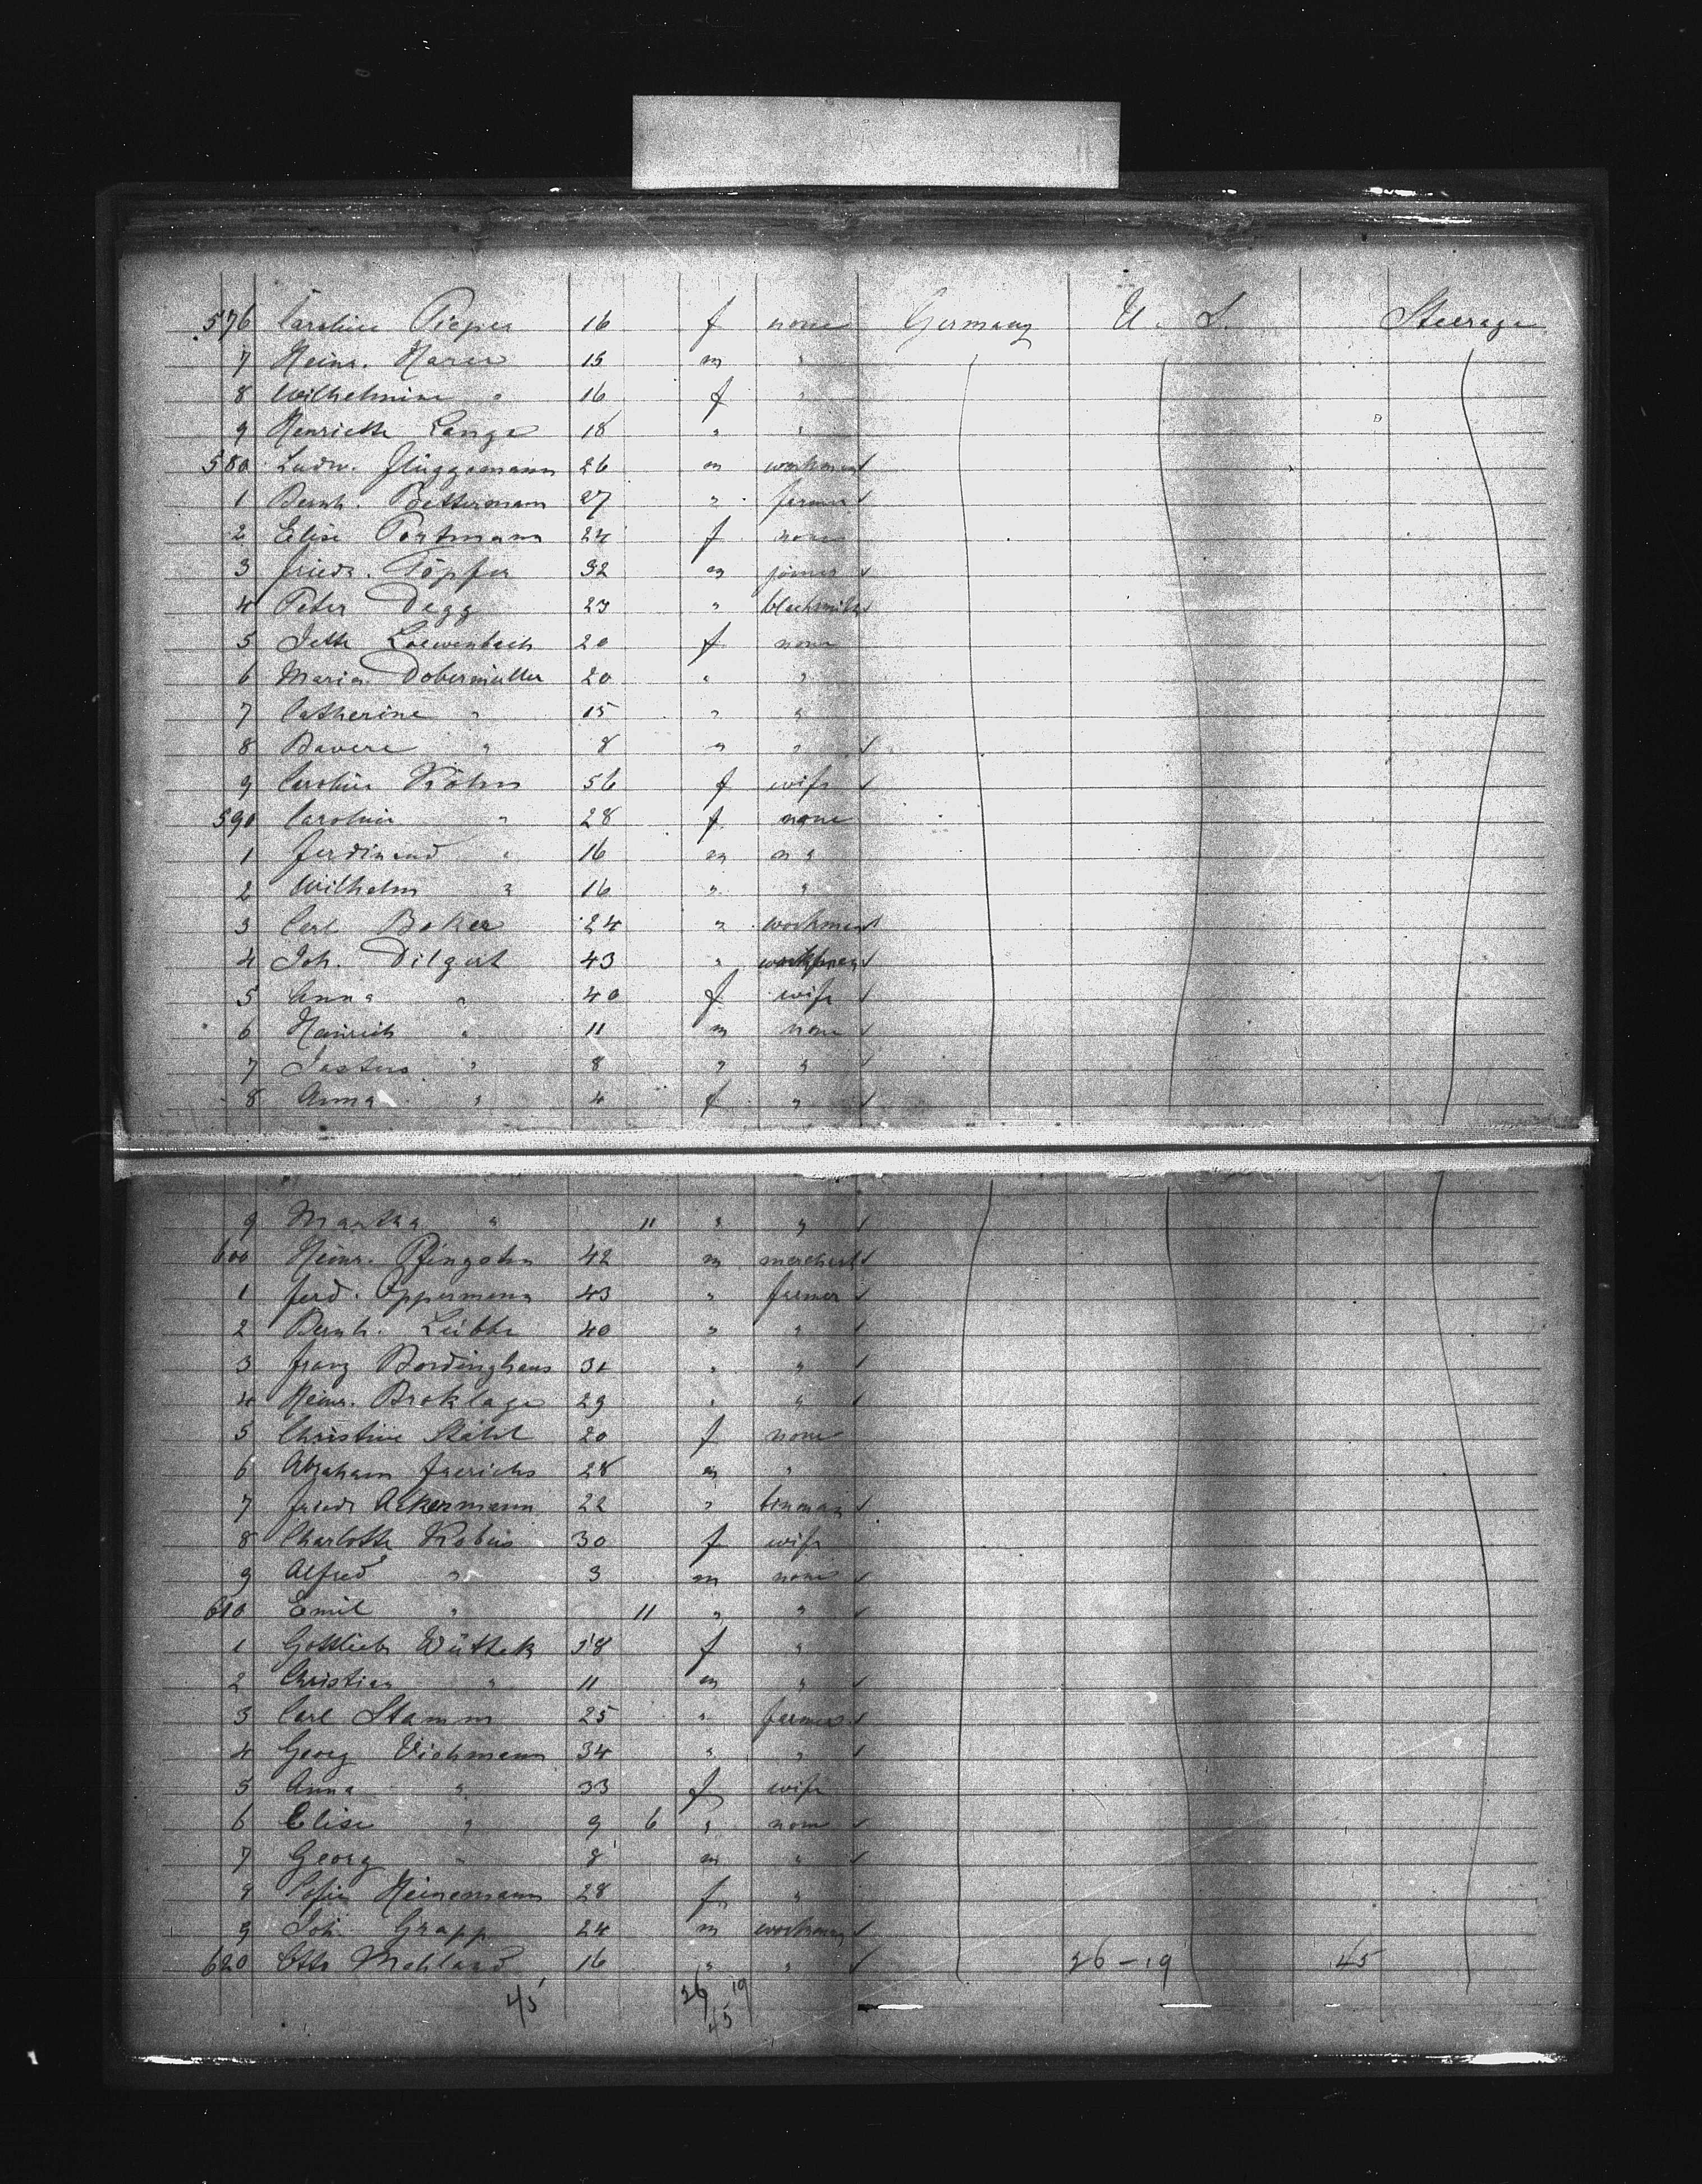 576 Caroline Pieper 16 f none Germany U. S. Steerage
7 Heinr. 15 m "
8 Wilhelmine " 16 f "
9 Henriette Lange 18 " "
580 Ludw. Flüggemann 26 m workman
1 Bernh. 27 " farmer
2 Elise Portmann 24 f none
3 Friedr. Töpfer 32 m joiner
4 Peter Degg 23 " blacksmith
5 Jette Loewenbach 20 f none
6 Maria Dobermüller 20 " "
7 Catherine " 15 " "
8 " 8 " "
9 Caroline Köhn 56 f wife
590 Caroline " 28 f none
1 Ferdinand " 16 m "
2 Wilhelm " 16 " "
3 Carl Boker 24 " workman
4 Joh. Dilgart 43 "
5 Anna " 40 f wife
6 Heinrich " 11 m none
7 " 8 " "
8 Anna " 4 f "
9 Martha " 11 " "
600 Heinr. 42 m merchant
1 Ferd. Oppermann 43 " farmer
2 Bernh. 40 " "
3 Franz Bordinghaus 31 " "
4 Heinr. Broklage 29 " "
5 Christine 20 f none
6 Abraham Frerichs 28 m "
7 Friedr. Ackermann 22 "
8 Charlotte Kobus 30 f wife
9 Alfred " 3 m none
610 Emil " 11 " "
1 Gottlieb Wüttek 58 f "
2 Christian " 11 m "
3 Carl Stamm 25 " farmer
4 Georg Vichmann 34 " "
5 Anna " 33 f wife
6 Elise " 9 6 " none
7 Georg " 8 m "
8 Sofie Heinemann 28 f "
9 Joh. Grapp 24 m workman
620 Otto 16 " " 26 - 19 45
45 26 19
45